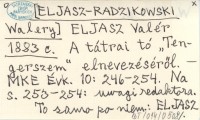 [ELJASZ-RADZIKOWSKI
Walery] ELJASZ Valér
1883 c. A tátrai tó „Ten-
gerszem" elnevezéséről. —
MKE Évk. 10: 246-254. Na
s. 253-254: uwagi redaktora.
To samo po niem.: ELJASZ